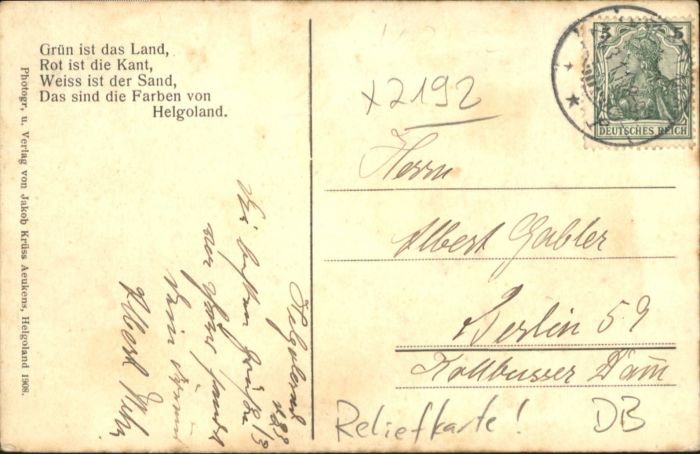 Grün ist das Land,
Rot ist die Kant,
Weiss ist der Sand,
Das sind die Farben von
Helgoland.
Photogr. u. Verlag von Jakob Krüss Aeukens, Helgoland 1908.
x2192
5 5
DEUTSCHES REICH
Herrn
Albert Gabler
Berlin 59
Kottbusser Damm
Helgoland
Die besten Grüße
Dein Freund
Albert
Reliefkarte!
DB